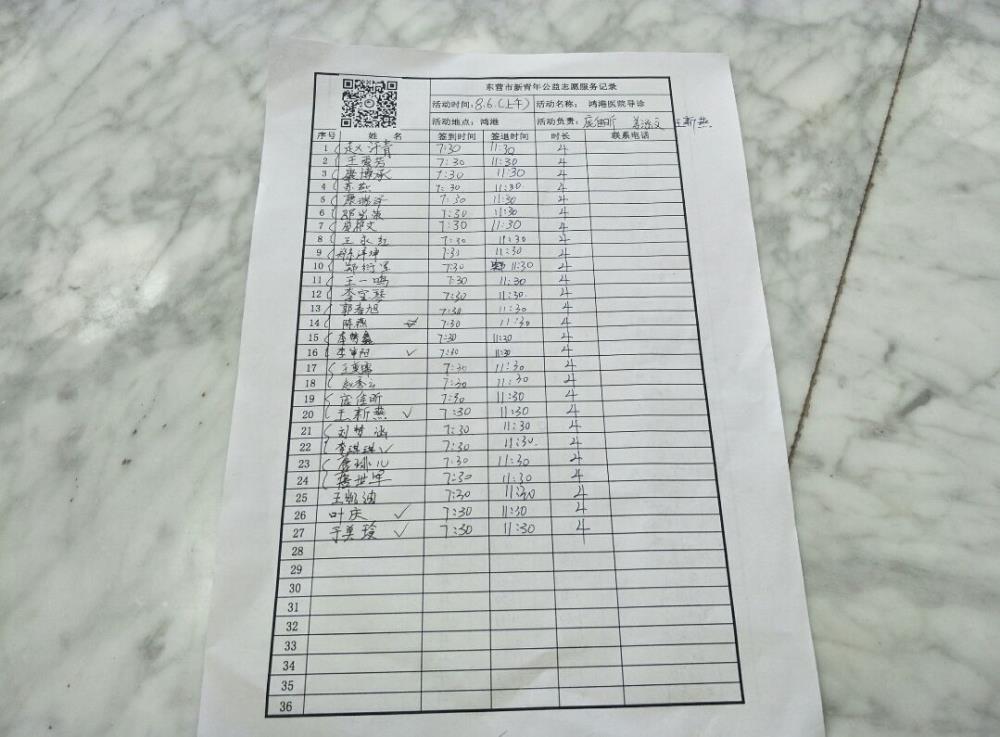 东营市新青年公益志愿服务记录
活动时间: 8.6.(上午) 活动名称: 鸿港医院导诊
活动地点: 鸿港 活动负责: 王新燕
序号 姓名 签到时间 签退时间 时长 联系电话
1 赵汗青 7:30 11:30 4
2 王爱芳 7:30 11:30 4
3 7:30 11:30 4
4 7:30 11:30 4
5 7:30 11:30 4
6 7:30 11:30 4
7 7:30 11:30 4
8 王永红 7:30 11:30 4
9 7:30 11:30 4
10 7:30 11:30 4
11 王一鸣 7:30 11:30 4
12 7:30 11:30 4
13 郭春旭 7:30 11:30 4
14 陈燕 7:30 11:30 4
15 7:30 11:30 4
16 7:30 11:30 4
17 7:30 11:30 4
18 7:30 11:30 4
19 7:30 11:30 4
20 王新燕 ✓ 7:30 11:30 4
21 刘梦涵 7:30 11:30 4
22 李琪琪 ✓ 7:30 11:30 4
23 7:30 11:30 4
24 7:30 11:30 4
25 王凯迪 7:30 11:30 4
26 叶庆 ✓ 7:30 11:30 4
27 于美玲 ✓ 7:30 11:30 4
28
29
30
31
32
33
34
35
36